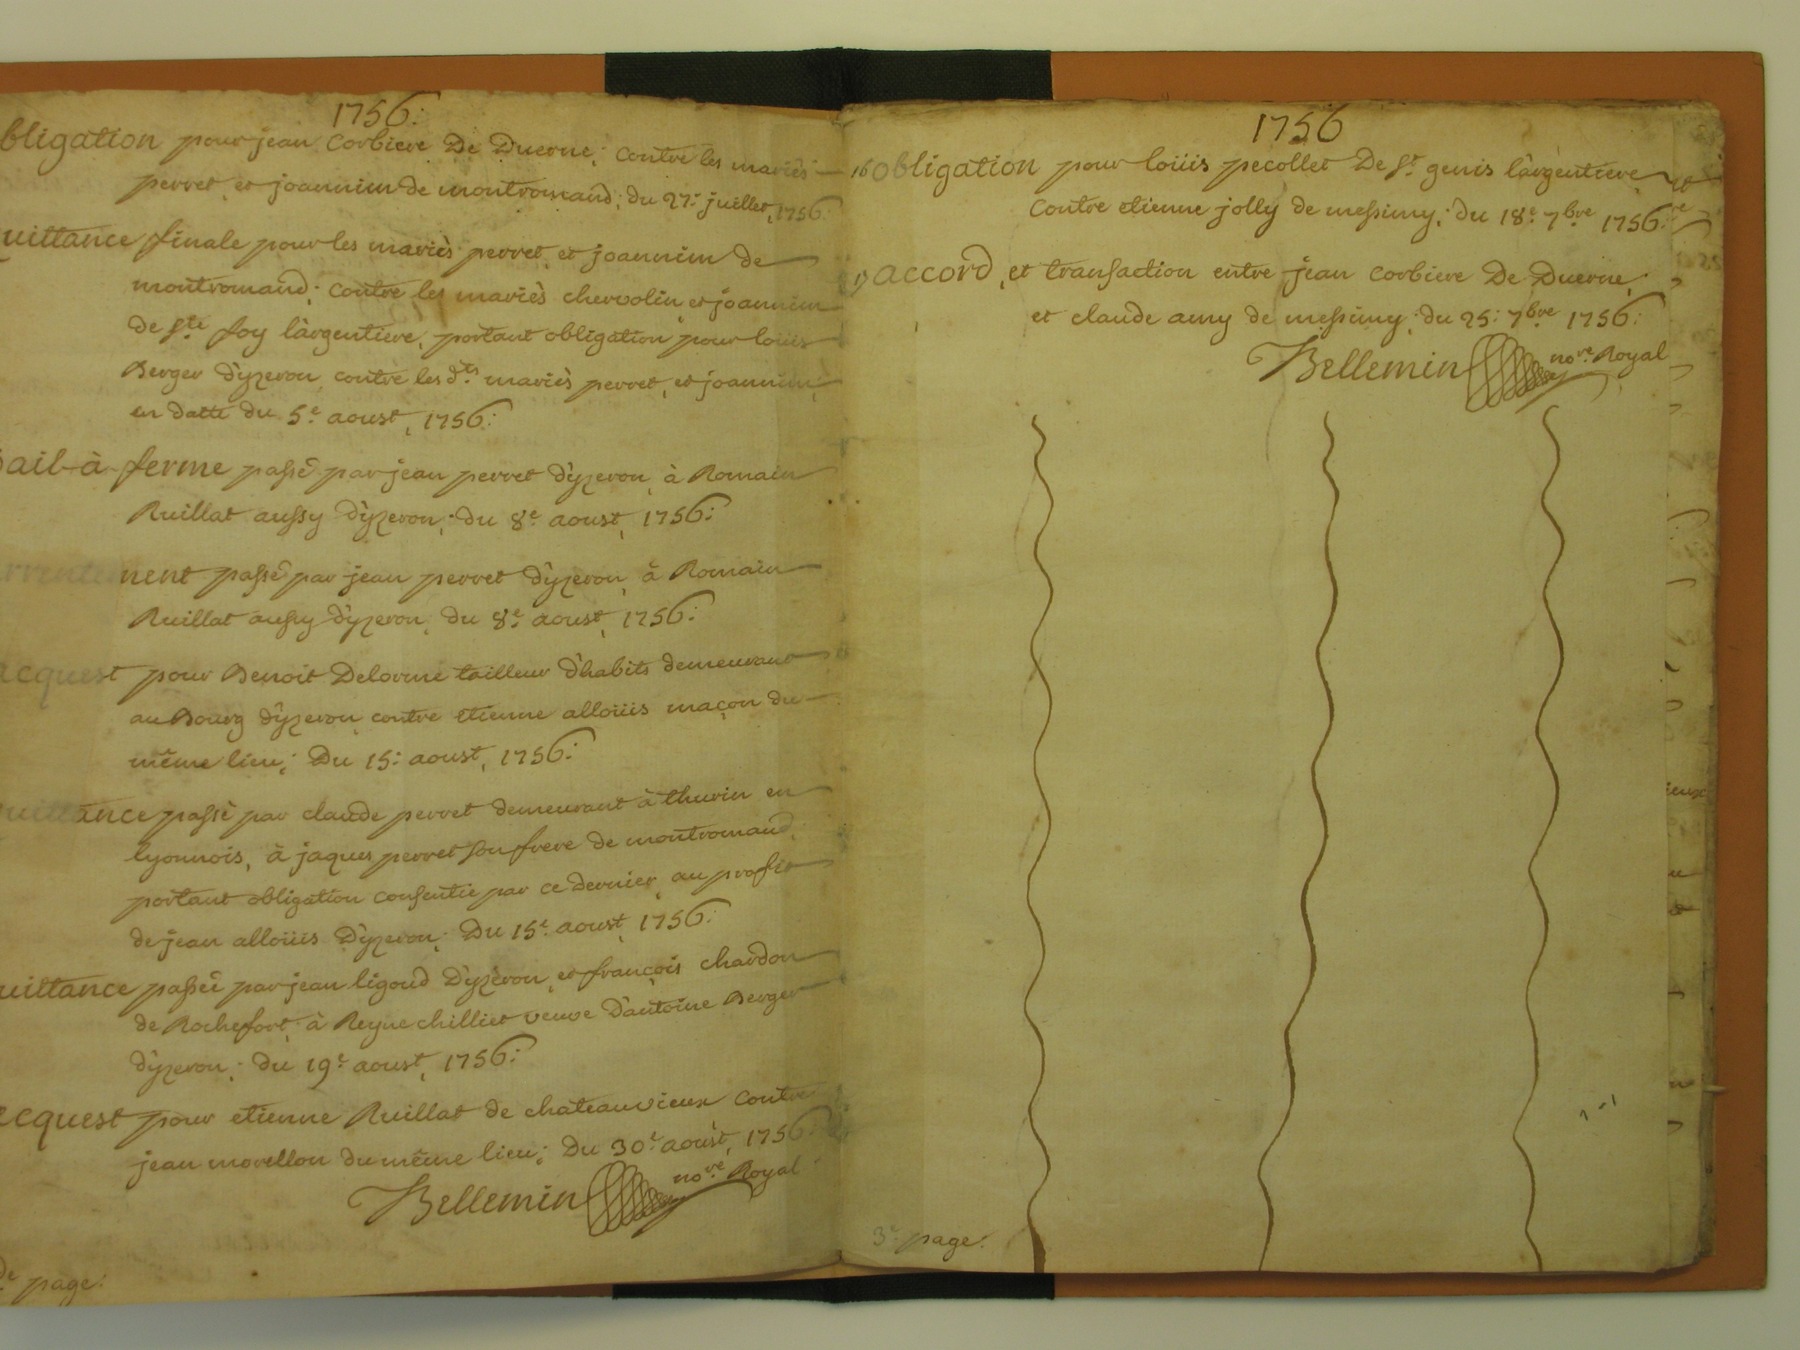 1756:
bligation pour jean Corbiere De Duerne; contre les mariés
perret, et joannim de montromand; du 27.e juillet, 1756:
uittance finale pour les mariès perret, et joannim de
montromand; contre les mariès chervolin, et joannim
de Ste foy làrgentiere, portant obligation pour loüis
Berger d'yzeron, contre les dts mariès perret, et joannim;
en datte du 5.e aoust, 1756:
ail-à-ferme passé par jean perret d'yzeron, à Romain
Ruillat aussy d'yzeron; du 8.e aoust, 1756:
rrentement passé par jean perret d'yzeron, à Romain
Ruillat aussy d'yzeron; du 8.e aoust, 1756:
acquest pour Benoit Delorme tailleur d'habits demeurant
au Bourg d'yzeron, contre etienne alloüis maçon du
même lieu; Du 15.e aoust, 1756:
uittance passé par claude perret demeurant à thurin en
lyonnois, à jaques perret son frere de montromand,
portant obligation consentie par ce dernier, au profit
de jean alloüis D'yzeron; Du 15.e aoust, 1756:
uittance passée par jean ligoud D'yzèron, et françois chardon
de Rochefort, à Reyne chilliet veuve D'antoine Berger
d'yzeron; du 19.e aoust, 1756:
acquest pour etienne Ruillat de chateauvieux contre
jean morellon du même lieu; Du 30.e aoùst, 1756:
Bellemin nore. Royal
de page:
1756
16 Obligation pour loüis pecollet De St. genis làrgentiere
contre etienne jolly de messimy; du 18.e 7.bre 1756:
17 accord, et transaction entre jean corbiere De Duerne,
et claude amy de messimy; du 25: 7bre 1756:
Bellemin nore. Royal
3.e page: